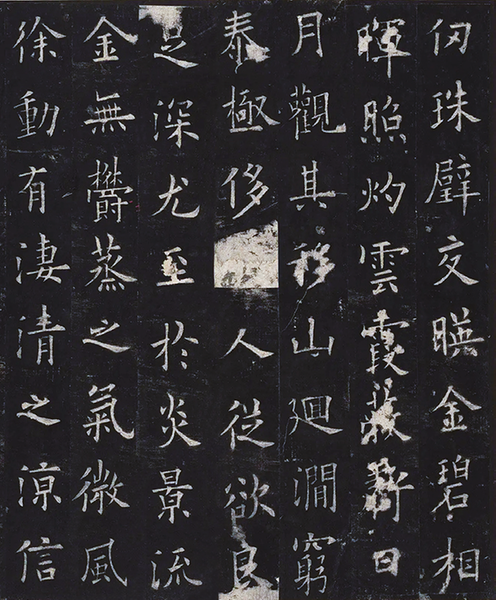 仞珠壁交暎金碧相
暉照灼雲霞蔽虧日
月觀其移山廻澗窮
泰極侈人從欲良
足深尤至於炎景流
金無鬱蒸之氣微風
徐動有淒清之涼信